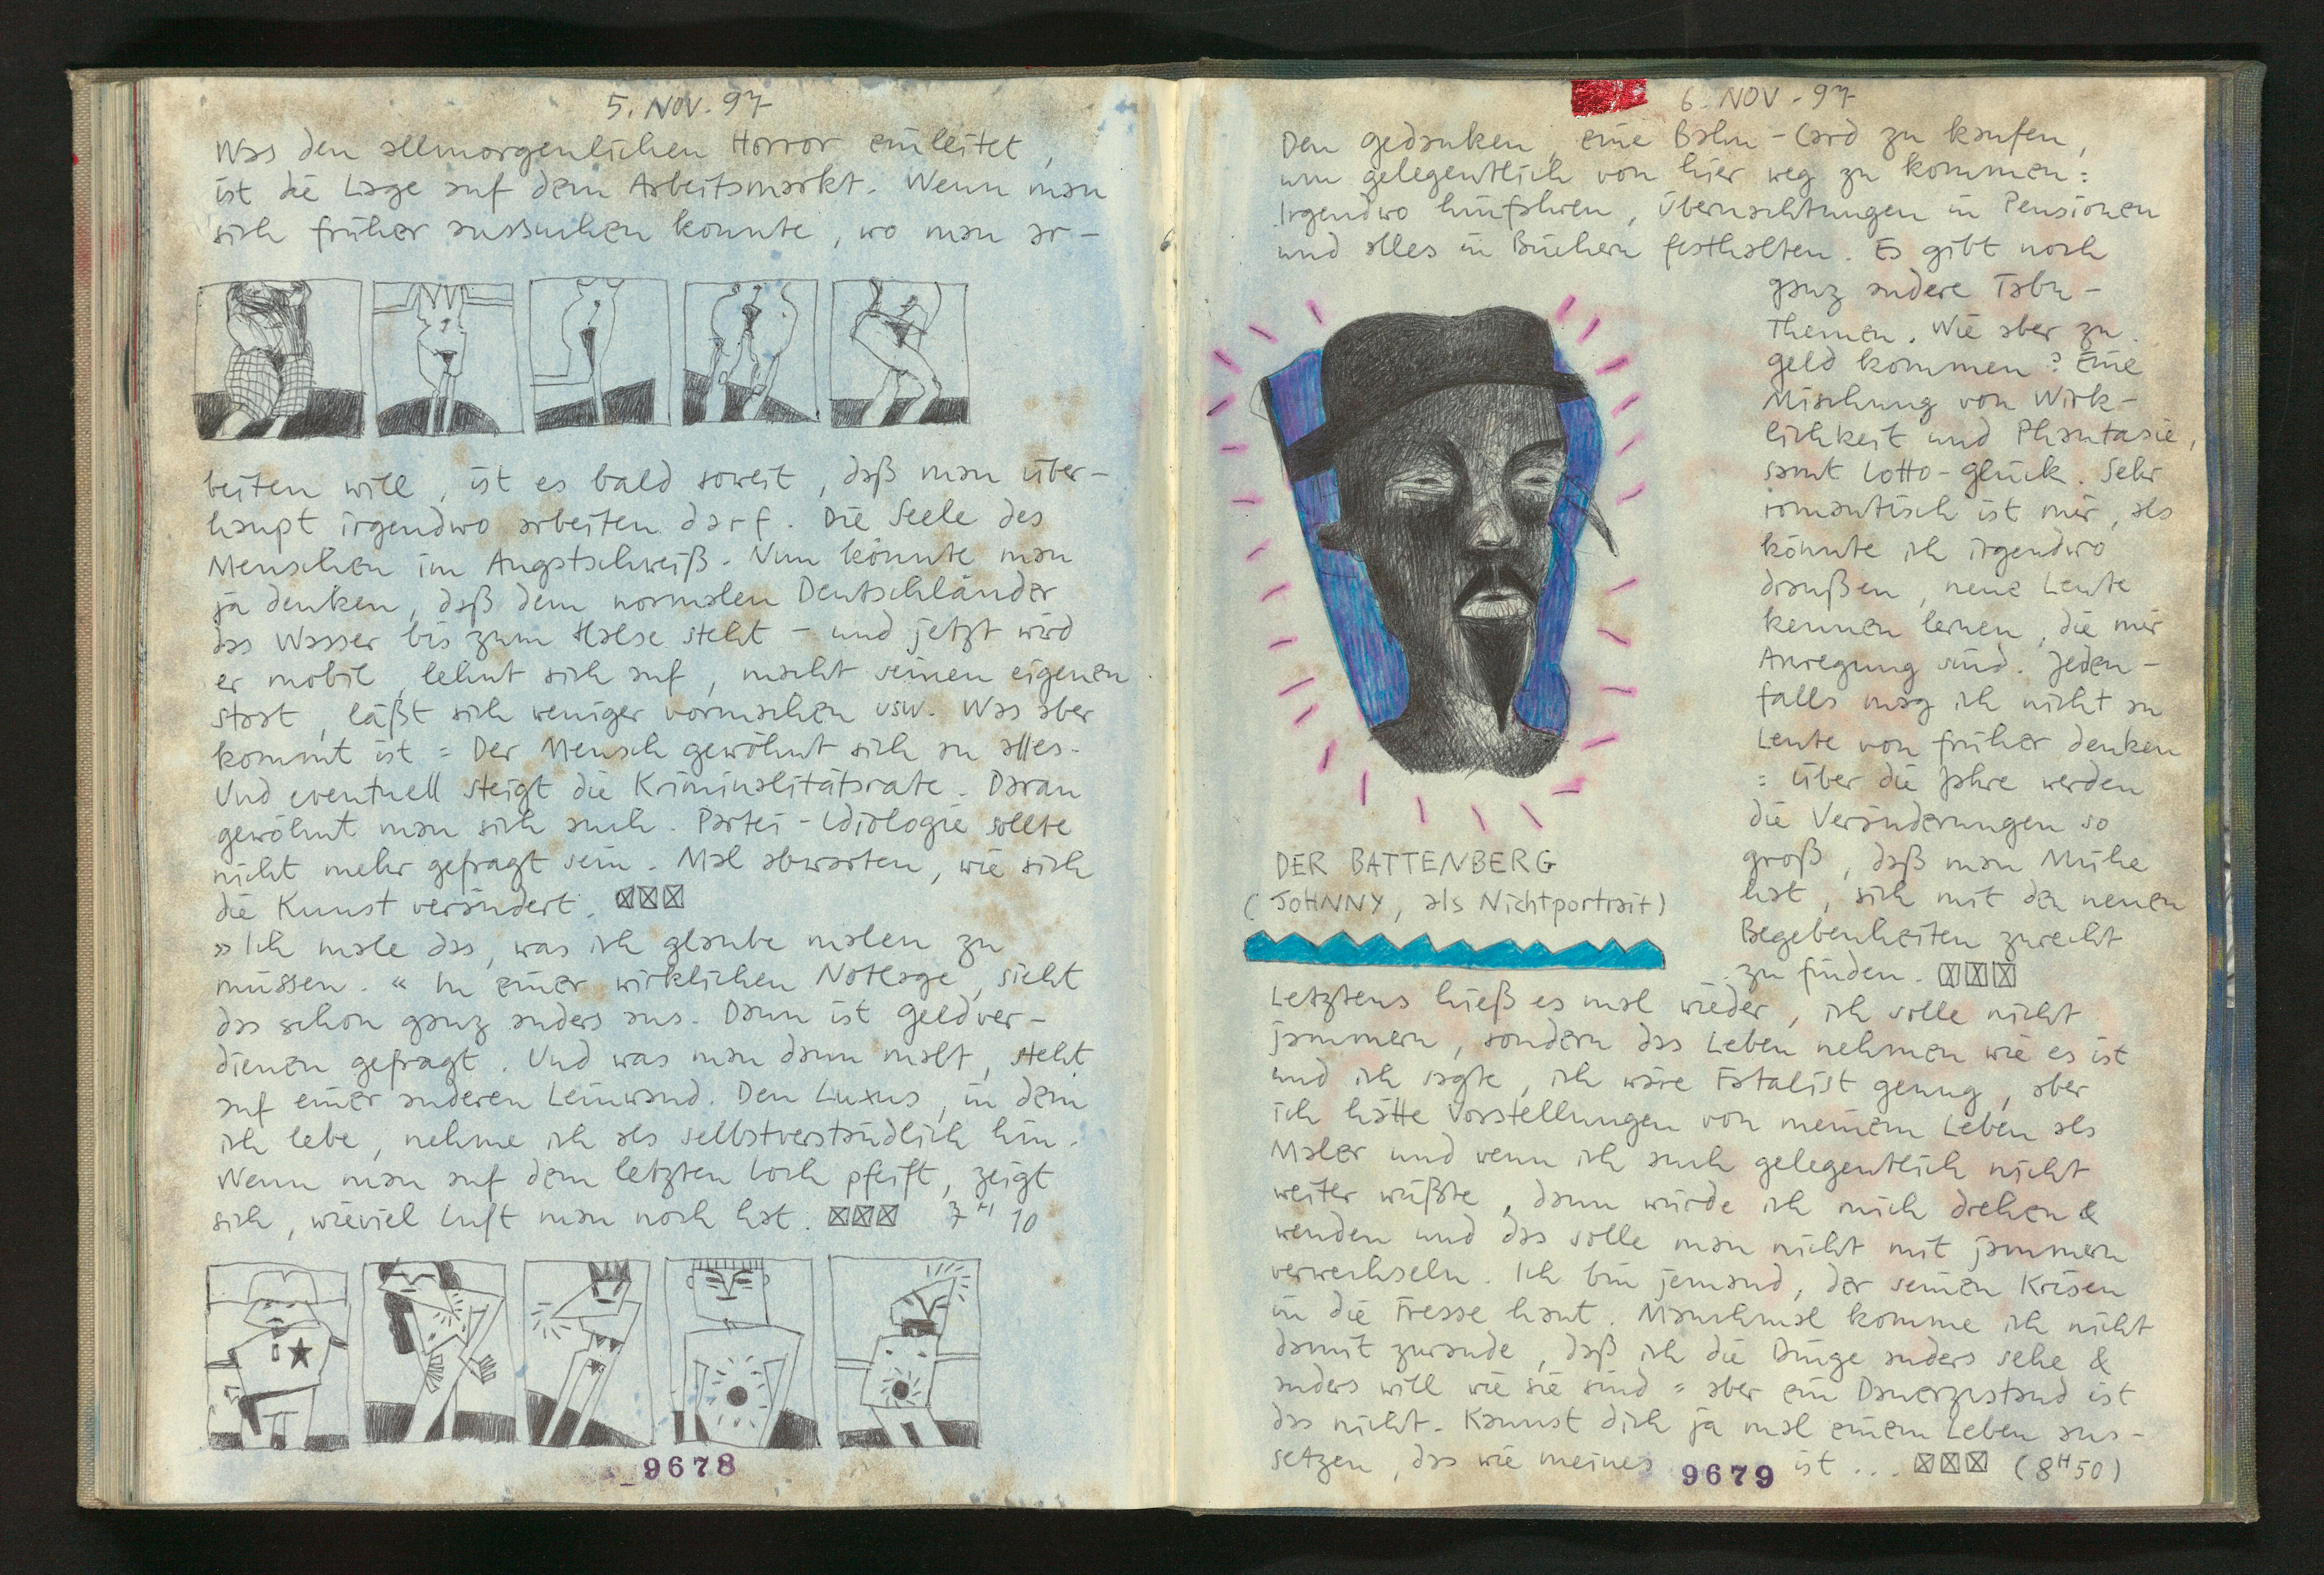 5. NOV. 97
Was den allmorgenlichen Horror einleitet,
ist die Lage auf dem Arbeitsmarkt. Wenn man
sich früher aussuchen konnte, wo man ar-
beiten will, ist es bald soweit, daß man über-
haupt irgendwo arbeiten darf. Die Seele des
Menschen im Angstschweiß. Nun könnte man
ja denken, daß dem normalen Deutschländer
das Wasser bis zum Halse steht – und jetzt wird
er mobil, lehnt sich auf, macht seinen eigenen
Staat, läßt sich weniger vormachen usw. Was aber
kommt ist = Der Mensch gewöhnt sich an alles.
Und eventuell steigt die Kriminalitätsrate. Daran
gewöhnt man sich auch. Partei-Idiologie sollte
nicht mehr gefragt sein. Mal abwarten, wie sich
die Kunst verändert. ☒☒☒
»Ich male das, was ich glaube malen zu
müssen.« In einer wirklichen Notlage, sieht
das schon ganz anders aus. Dann ist Geldver-
dienen gefragt. Und was man dann malt, steht
auf einer anderen Leinwand. Den Luxus, in dem
ich lebe, nehme ich als selbstverständlich hin.
Wenn man auf dem letzten Loch pfeift, zeigt
sich, wieviel Luft man noch hat. ☒☒☒ 7 H 10
9678
6. NOV. 97
Den Gedanken, eine Bahn-Card zu kaufen,
um gelegentlich von hier weg zu kommen:
Irgendwo hinfahren, Übernachtungen in Pensionen
und alles in Büchern festhalten. Es gibt noch
ganz andere Tabu-
Themen. Wie aber zu
Geld kommen? Eine
Mischung von Wirk-
lichkeit und Phantasie,
samt Lotto-Glück. Sehr
romantisch ist mir, als
könnte ich irgendwo
draußen, neue Leute
kennen lernen, die mir
Anregung sind. Jeden-
falls mag ich nicht an
Leute von früher denken
= Über die Jahre werden
die Veränderungen so
groß, daß man Mühe
hat, sich mit den neuen
Begebenheiten zurecht
zu finden. ☒☒☒
DER BATTENBERG
(JOHNNY, als Nichtportrait)
Letztens hieß es mal wieder, ich solle nicht
jammern, sondern das Leben nehmen wie es ist
und ich sagte, ich wäre Fatalist genug, aber
ich hätte Vorstellungen von meinem Leben als
Maler und wenn ich auch gelegentlich nicht
weiter wüßte, dann würde ich mich drehen &
wenden und das solle man nicht mit jammern
verwechseln. Ich bin jemand, der seinen Krisen
in die Fresse haut. Manchmal komme ich nicht
damit zurande, daß ich die Dinge anders sehe &
anders will wie sie sind = aber ein Dauerzustand ist
das nicht. Kannst dich ja mal einem Leben aus-
setzen, das wie meines ist ... ☒☒☒ (8 H 50)
9679